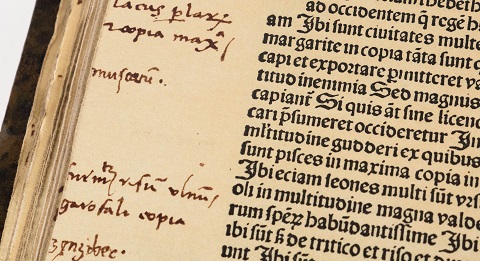 lacus
⁊ copia maxᵃ
muscatū.
garofali copia
ad occidentem q̄ regē h
am Ibi sunt ciuitates multe
margarite in copia tāta sunt q
capi et exportare pmitteret va
titud inenimia Sed magnus
capiant̄ Si quis āt sine licenc
cari p̄sumeret occideretur In
ml'titudine gudderi ex quibus
sunt pisces in maxima copia in
Ibi eciam leones multi sūt vrs
oli in multitudine magna valde
rum spēꝝ habūdantissime Ibi
ibi sūt de tritico et riso et du
unt Ibi